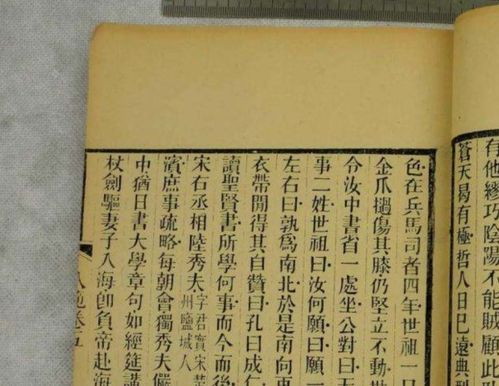 有他繆巧陰陽不能賊顧此
蒼天曷有極哲人日已遠典
色在兵馬司者四年世祖一
金爪撾傷其膝仍堅立不動
令汝中書省一處坐公對曰
事二姓世祖曰汝何願曰願
左右曰孰為南北於是南向
衣帶間得其自贊曰孔曰成
讀聖賢書所學何事而今而後
宋右丞相陸秀夫字君實宋
州鹽城人
濱庶事疏略每朝會獨秀夫儼
中猶日書大學章句如經筵講
杖劍驅妻子入海即負帝赴海